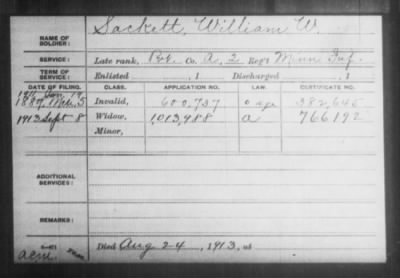 NAME OF SOLDIER: Sackett, William W.
SERVICE: Late rank, Pvt. Co. A, 2 Reg't Minn Inf.
TERM OF SERVICE: Enlisted , 1 Discharged , 1
DATE OF FILING. CLASS. APPLICATION NO. LAW. CERTIFICATE NO.
1887, 5 Invalid, 600,737 382,645
1913 Sept 8 Widow, 1,013,988 a 766192
Minor,
ADDITIONAL SERVICES:
REMARKS:
Died Aug 24, 1913, at